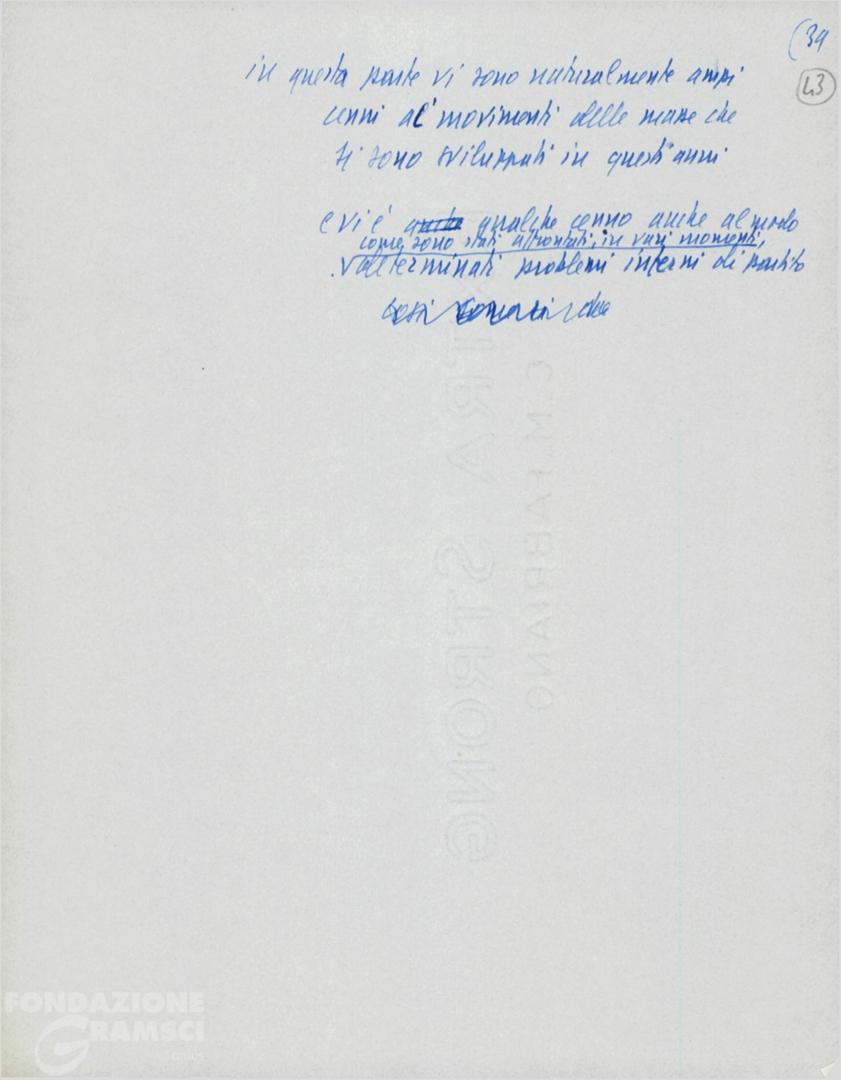 (39
43
in questa parte vi sono naturalmente ampi
cenni ai movimenti delle masse che
si sono sviluppati in questi anni
e vi è anche qualche cenno anche al modo
come sono stati affrontati, in vari momenti,
determinati problemi interni di partito
EXTRA STRONG
C. M. FABRIANO
FONDAZIONE
GRAMSCI